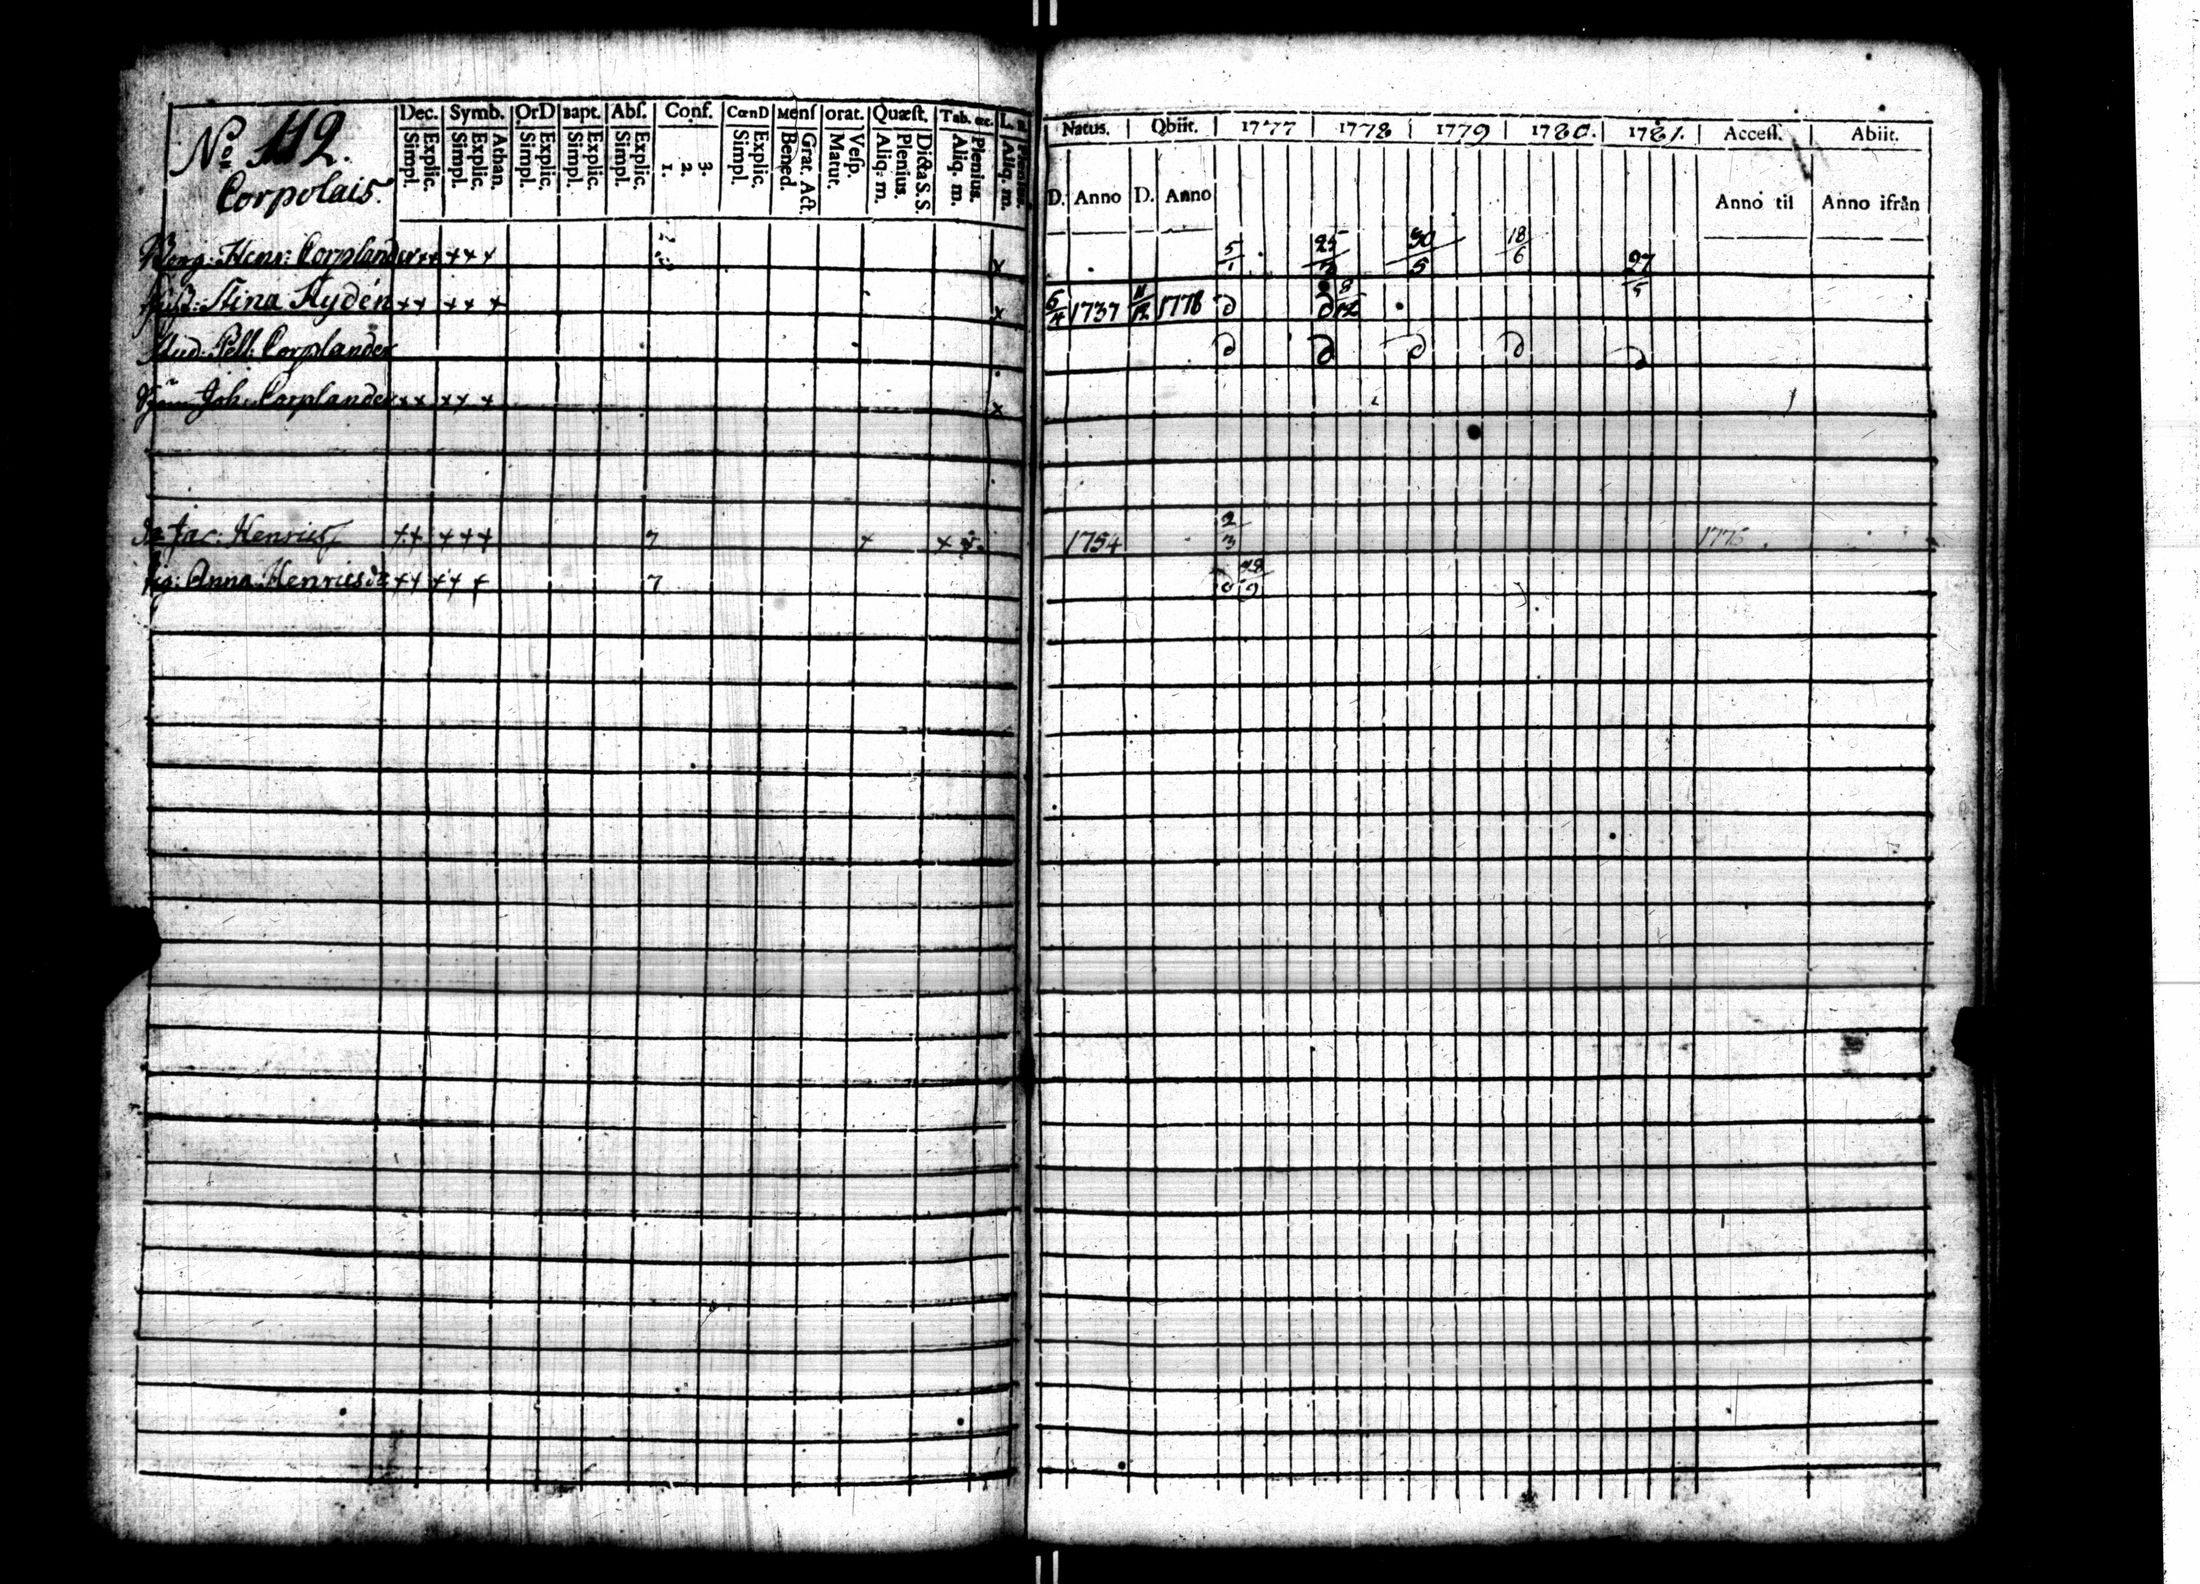 No 112.
Corpolais.
Dec. Symb. OrD Bapt. Abſ. Conf. CœnD Menſ orat. Quæſt. Tab. œc. L. n.
Simpl. Explic. Simpl. Explic. Athan. Simpl. Explic. Simpl. Explic. Simpl. Explic. 1. 2. 3. Simpl. Explic. Bened. Grat. Act. Matut. Veſp. Aliq. m. Plenius. Dicta S.S. Aliq. m. Plenius. Aliq. m. Plenius.
Natus. Obiit. 1777 1778 1779 1780. 1781. Acceſſ. Abiit.
D. Anno D. Anno Anno til Anno ifrån
Henr: Corplander ++ +++ x 5/1 25/3 30/5 18/6 27/5
Stina Rydén ++ ++ + x 6/4 1737 11/12 1778 8/12
Stud: Corplander
Joh: Corplander ++ ++ + x
Jac: Henrics ++ +++ 7 + + 1754 2/3 1776.
Pig: Anna Henricsdr ++ ++ + 7 28/9